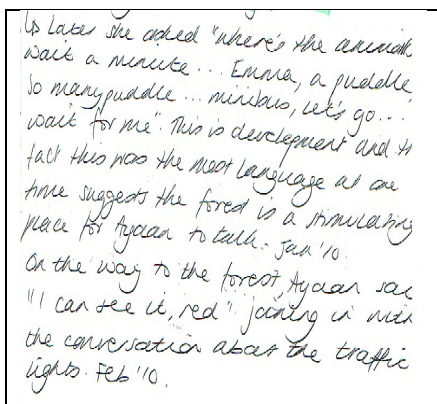 ↳ Later she asked "where's the animals
wait a minute... Emma, a puddle
so many puddle... minibus, let's go...
wait for me". This is development and th
fact this was the most language at one
time suggests the forest is a stimulating
place for Ayaan to talk. Jan '10.
On the way to the forest Ayaan sai
"I can see it, red" joining in with
the conversation about the traffic
lights. Feb '10.